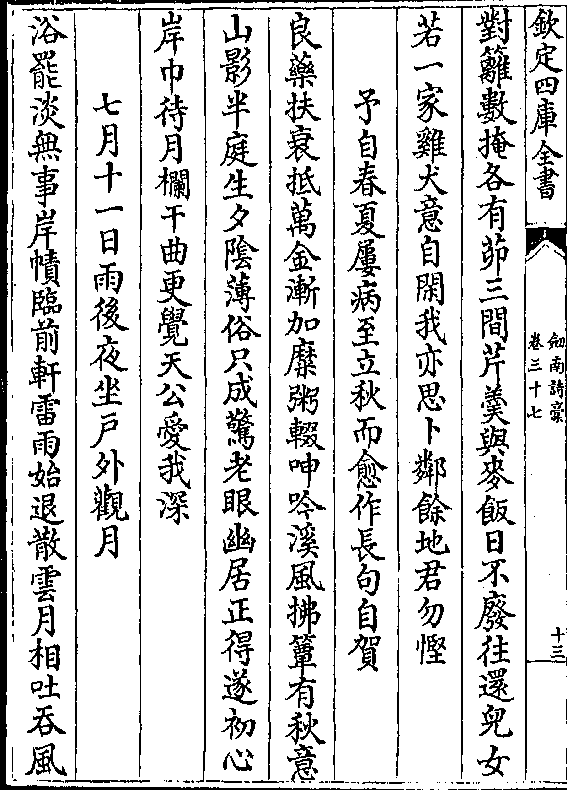 欽定四庫全書
劒南詩藁
卷三十七
十三
對籬數掩各有茆三間芹羮與麥飯日不廢往還兒女
若一家雞犬意自閑我亦思卜鄰餘地君勿慳
予自春夏屢病至立秋而愈作長句自賀
良藥扶衰抵萬金漸加糜粥輟呻吟溪風拂簟有秋意
山影半庭生夕陰薄俗只成驚老眼幽居正得遂初心
岸巾待月欄干曲更覺天公愛我深
七月十一日雨後夜坐戸外觀月
浴罷淡無事岸幘臨前軒雷雨始退散雲月相吐吞風